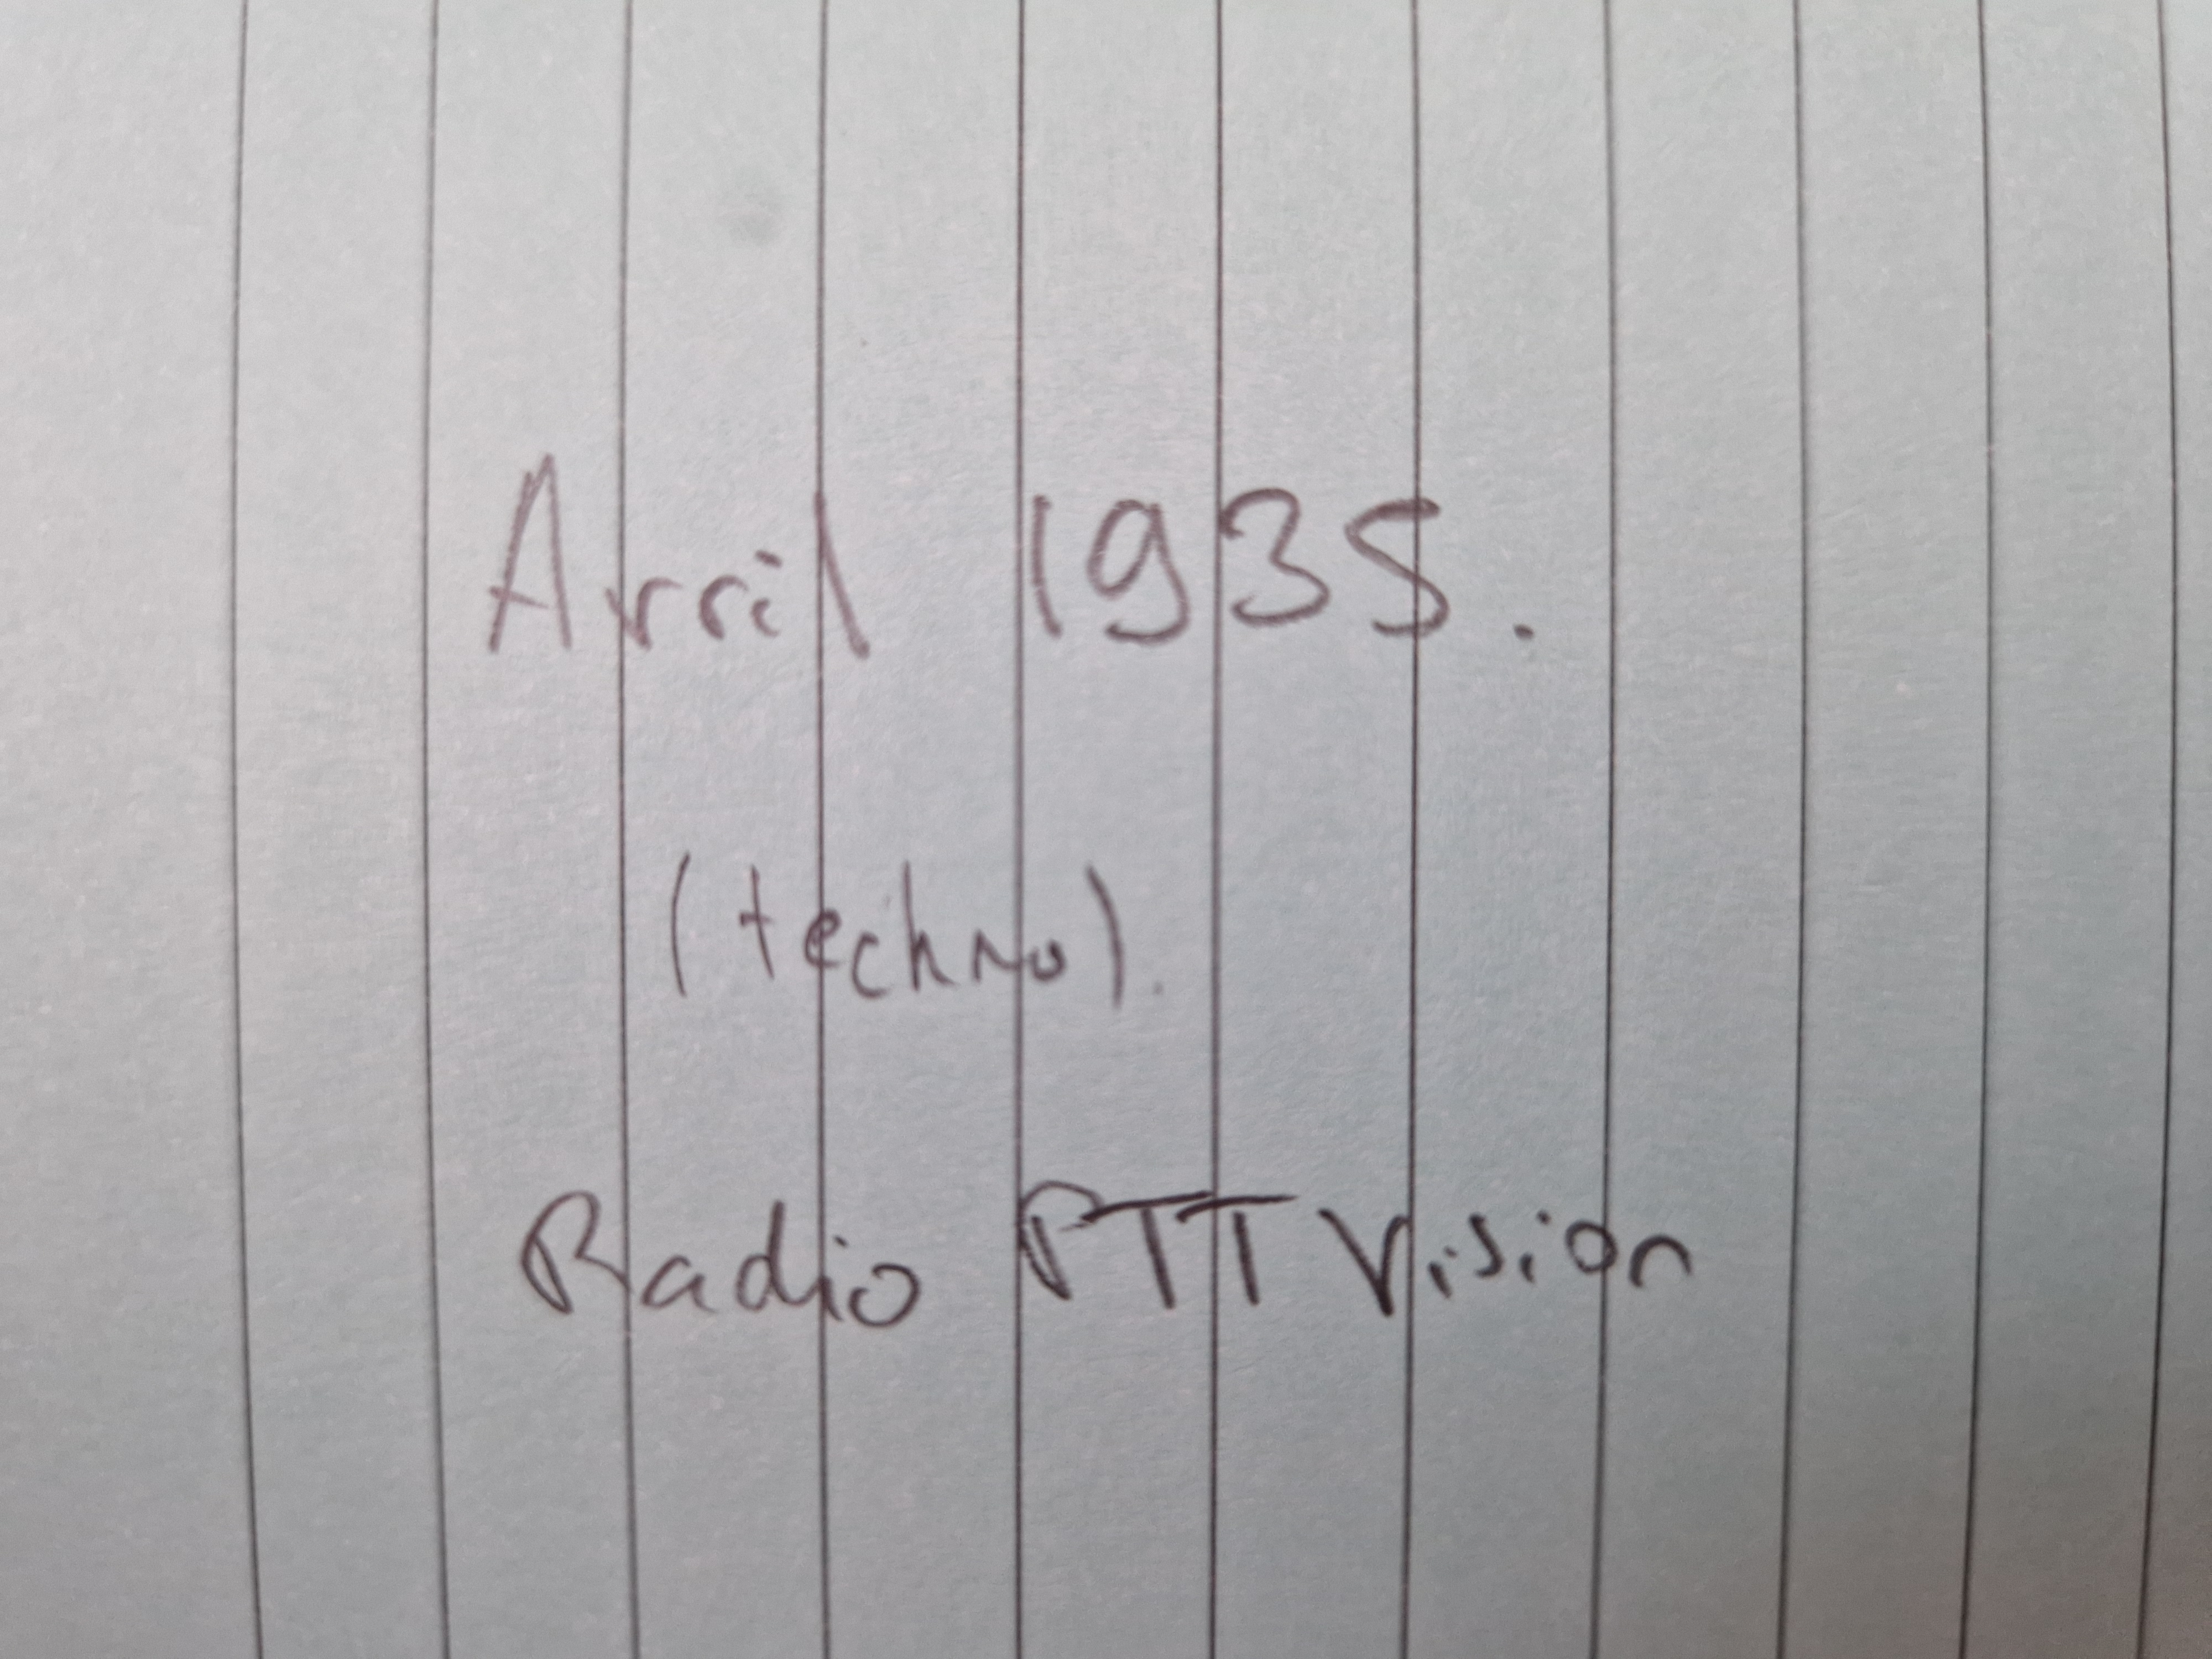 Avril 1935.
(techno)
Radio PTT Vision